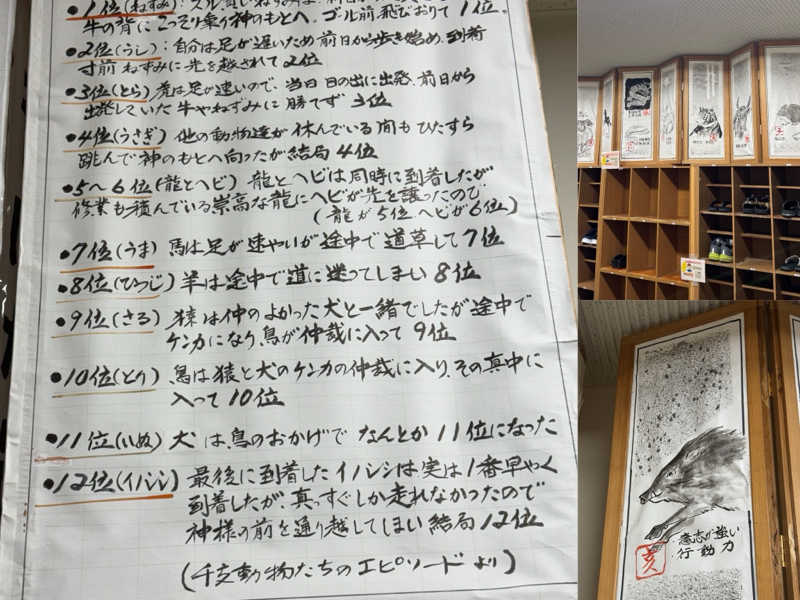 •1位(ねずみ)
牛の背にこっそり乗り神のもとへ。ゴール前飛びおりて1位。
•2位(うし):自分は足が遅いため前日から歩き始め、到着
寸前ねずみに先を越されて2位
•3位(とら)虎は足が速いので、当日日の出に出発、前日から
出発していた牛やねずみに勝てず3位
•4位(うさぎ) 他の動物達が休んでいる間もひたすら
跳んで神のもとへ向ったが結局4位
•5〜6位(龍とヘビ) 龍とヘビは同時に到着したが
修業も積んでいる崇高な龍にヘビが先を譲ったので
(龍が5位ヘビが6位)
•7位(うま) 馬は足が速やいが途中で道草して7位
•8位(ひつじ) 羊は途中で道に迷ってしまい8位
•9位(さる) 猿は仲のよかった犬と一緒でしたが途中で
ケンカになり、鳥が仲裁に入って9位
•10位(とり) 鳥は猿と犬のケンカの仲裁に入り、その真中に
入って10位
•11位(いぬ) 犬は、鳥のおかげでなんとか11位になった
•12位(イノシシ) 最後に到着したイノシシは実は1番早やく
到着したが、真っすぐしか走れなかったので
神様の前を通り越してしまい結局12位
(干支動物たちのエピソードより)
意志が強い
行動力
亥